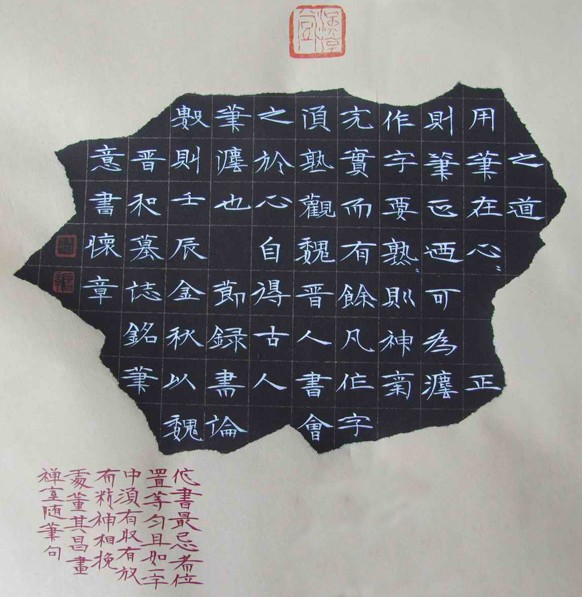 之道
用筆在心〻正
則筆正廼可為灋
作字要熟〻則神氣
充實而有餘凡作字
須熟觀魏晉人書會
之於心自得古人
筆灋也 節録書論
數則壬辰金秋以魏
晉和墓誌銘筆
意書懷章
作書最忌者位
置等勻且如一字
中須有收有放
有精神相挽
處董其昌畫
禅室随筆句